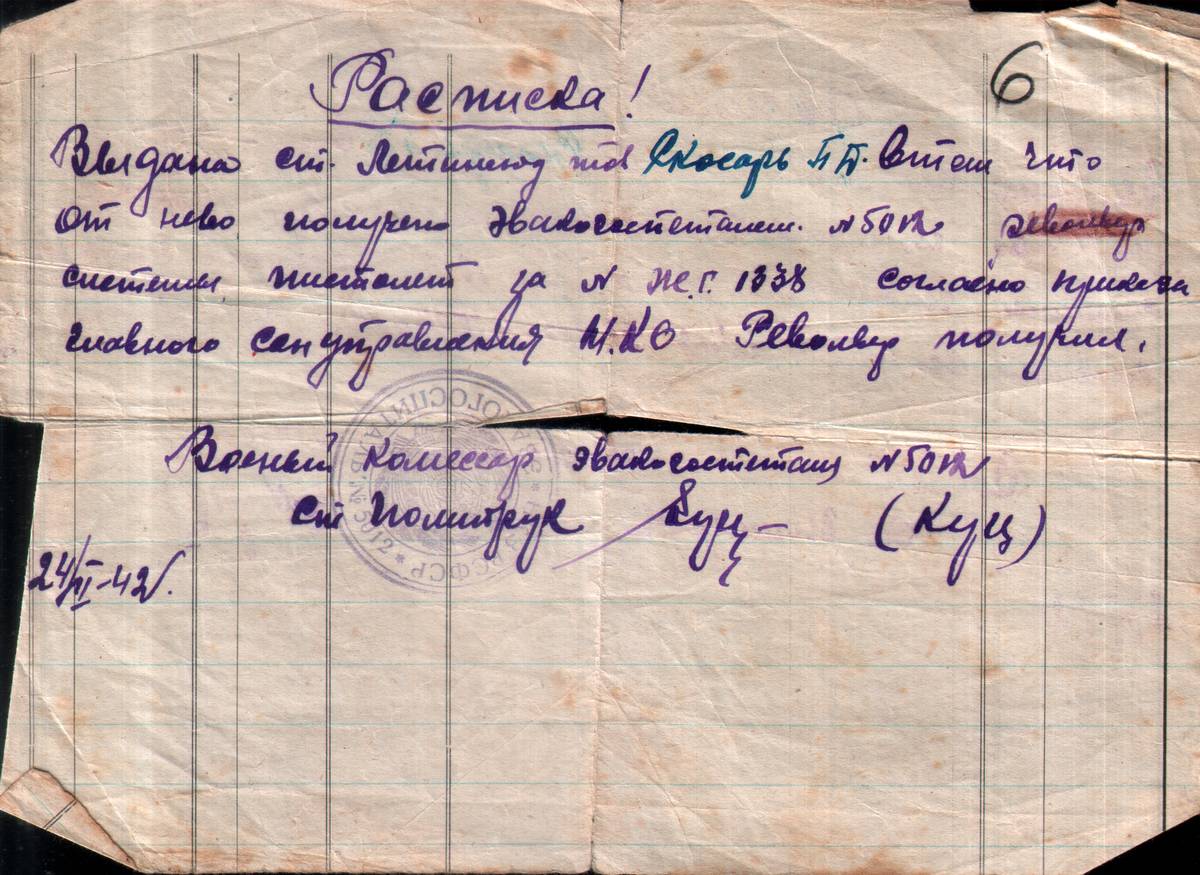 6
Расписка!
Выдана ст. Летинанд тов Скосарь П П. втом что
от нево получено Эвакогоспеталем. N 5012 револьвер
системы пистолет за N Ж.Г. 1338 согласно приказа
главного сануправления Н.К.О Револьвер получил.
Военый комессар эвакогоспеталя N 5012
ст Политрук Куц (Куц)
24/II-42г.
ЭВАКОГОСПИТАЛЬ № 5012 * РСФСР